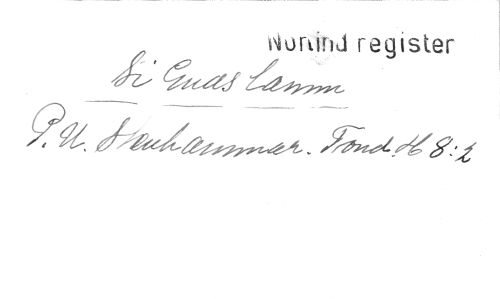 Norlind register
Si Guds Lamm
P. U. Stenhammar. Fond. H 8:2